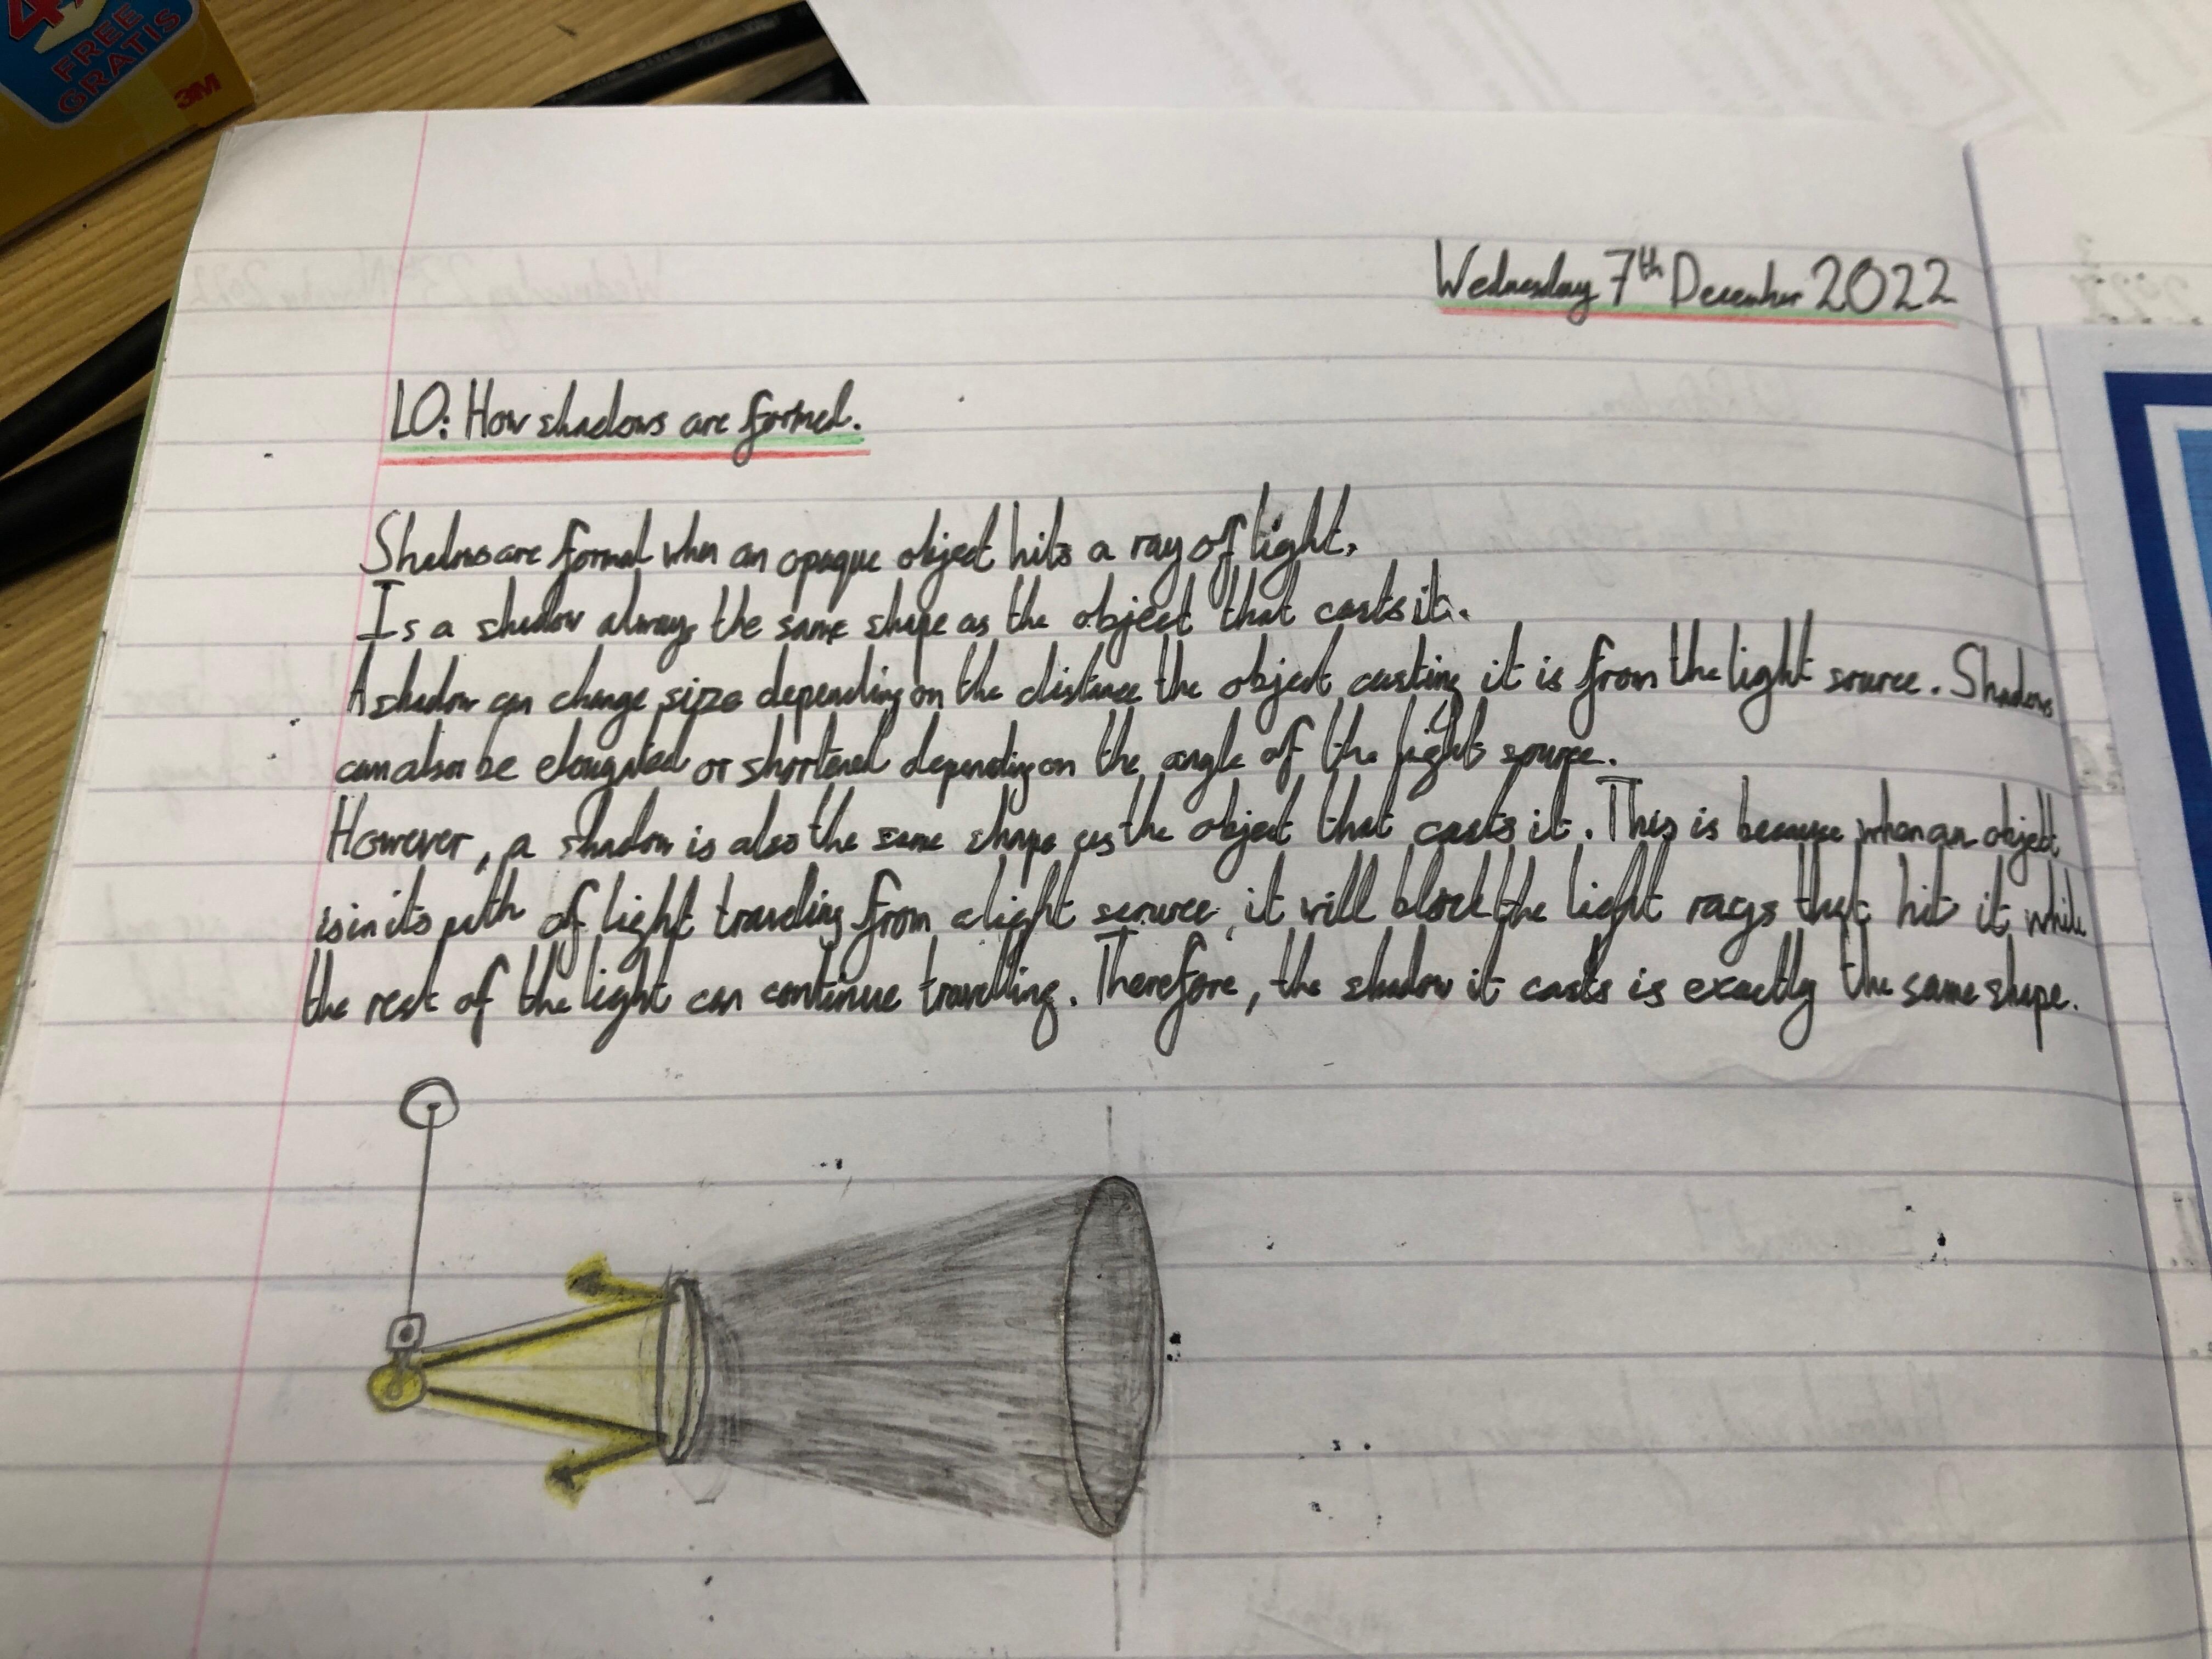 4
FREE
GRATIS
3M
Wednesday 7th December 2022
LO: How shadows are formed.
Shadows are formed when an opaque object hits a ray of light.
Is a shadow always the same shape as the object that casts it.
A shadow can change size depending on the distance the object casting it is from the light source. Shadows
can also be elongated or shortened depending on the angle of the light source.
However, a shadow is also the same shape as the object that casts it. This is because when an object
is in its path of light traveling from a light source, it will block the light rays that hit it while
the rest of the light can continue travelling. Therefore, the shadow it casts is exactly the same shape.